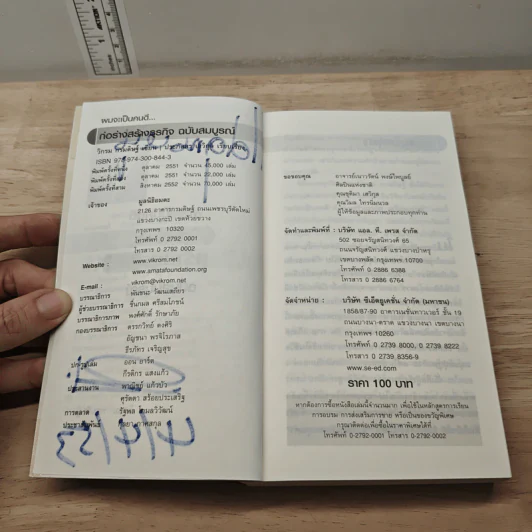 ผมจะเป็นคนดี...
ก่อร่างสร้างธุรกิจ ฉบับสมบูรณ์
วิกรม กรมดิษฐ์ เขียน / ประภัสสร เสวิกุล เรียบเรียง
ISBN 978-974-300-844-3
พิมพ์ครั้งที่หนึ่ง ตุลาคม 2551 จำนวน
พิมพ์ครั้งที่สอง ตุลาคม 2551 จำนวน 22,000 เล่ม
พิมพ์ครั้งที่สาม สิงหาคม 2552 จำนวน
เจ้าของ มูลนิธิอมตะ
2126 อาคารกรมดิษฐ์ ถนนเพชรบุรีตัดใหม่
แขวงบางกะปิ เขตห้วยขวาง
กรุงเทพฯ 10320
โทรศัพท์ 0 2792 0001
โทรสาร 0 2792 0002
Website : www.vikrom.net
www.amatafoundation.org
E-mail : vikrom@vikrom.net
บรรณาธิการ พันขนะ วัฒนเสถียร
ผู้ช่วยบรรณาธิการ ชื่นกมล ศรีสมโภชน์
บรรณาธิการภาพ พงศ์ศักดิ์ รักษาภัย
กองบรรณาธิการ วรรกวิทย์ คงศิริ
อัญชนา พรจิโรภาส
ธีรภัทร เจริญสุข
ออน อาร์ต
กีรติกร แสงแก้ว
ประสานงาน พาณิชย์ แก้วบัว
สุรัตดา สร้อยประเสริฐ
การตลาด
ประชาสัมพันธ์
ขอขอบคุณ อาจารย์เนาวรัตน์ พงษ์ไพบูลย์
ศิลปินแห่งชาติ
คุณชุติมา เสวิกุล
คุณวิมล ไทรนิ่มนวล
ผู้ให้ข้อมูลและภาพประกอบทุกท่าน
จัดทำและพิมพ์ที่ : บริษัท แอล. ที. เพรส จำกัด
502 ซอยจรัญสนิทวงศ์ 65
ถนนจรัญสนิทวงศ์ แขวงบางบำหรุ
เขตบางพลัด กรุงเทพฯ 10700
โทรศัพท์ 0 2886 6386
โทรสาร 0 2886 6764
จัดจำหน่าย : บริษัท ซีเอ็ดยูเคชั่น จำกัด (มหาชน)
1858/87-90 อาคารเนชั่นทาวเวอร์ ชั้น 19
ถนนบางนา-ตราด แขวงบางนา เขตบางนา
กรุงเทพฯ 10260
โทรศัพท์ 0 2739 8000, 0 2739 8222
โทรสาร 0 2739 8356-9
www.se-ed.com
ราคา 100 บาท
หากต้องการซื้อหนังสือเล่มนี้จำนวนมาก เพื่อใช้ในหลักสูตรการเรียน
การอบรม การส่งเสริมการขาย หรือเป็นของขวัญพิเศษ
กรุณาติดต่อเพื่อขอในราคาพิเศษได้ที่
โทรศัพท์ 0-2792-0001 โทรสาร 0-2792-0002